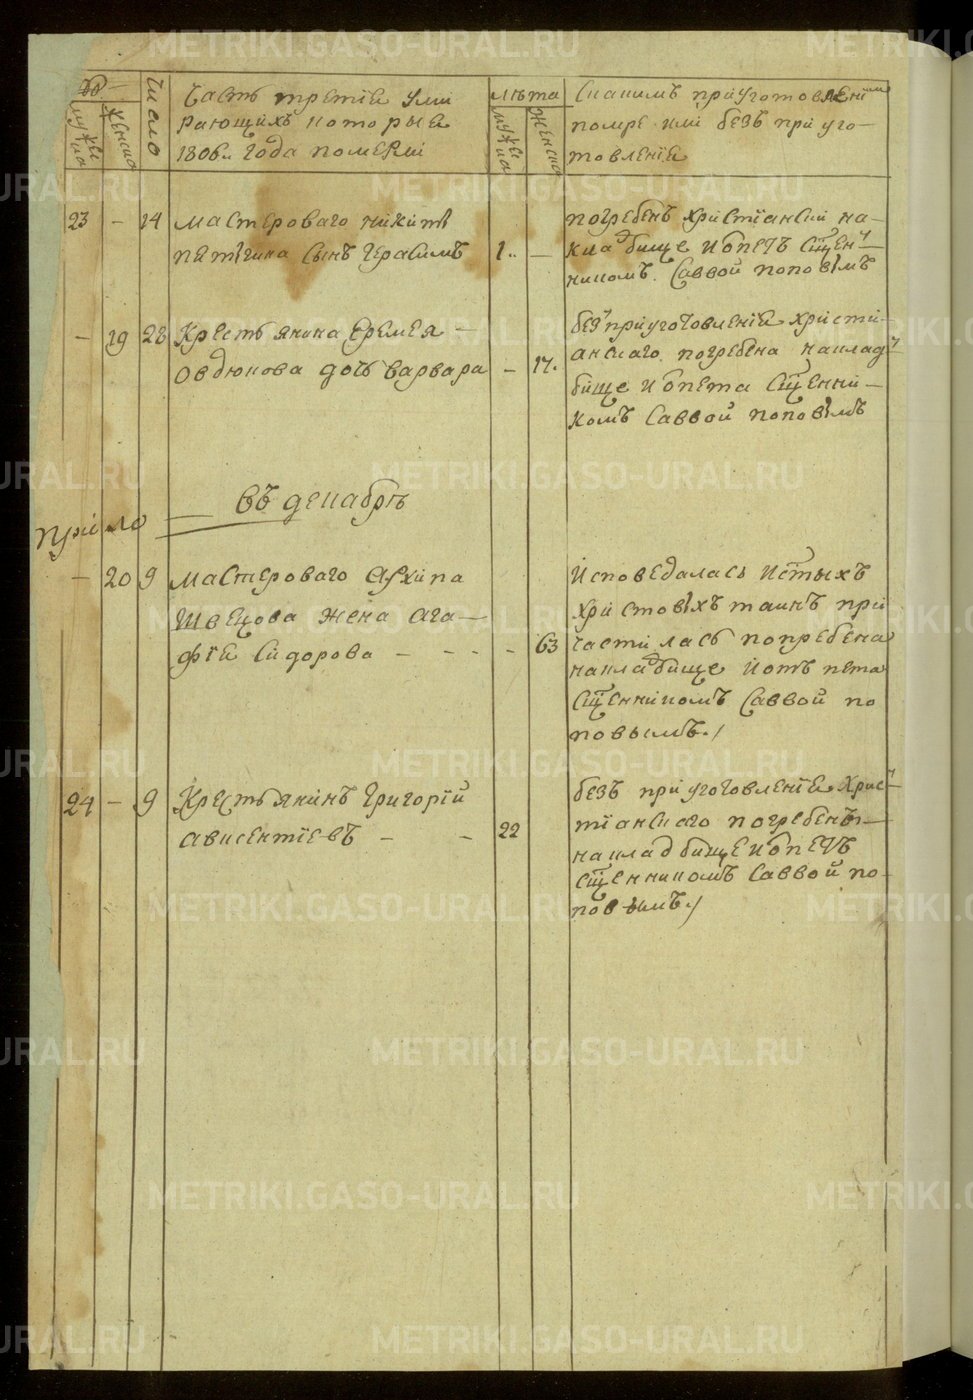 №
мужеска
женска
число
Часть третїе уми
рающихъ которые
1806го года померли
лѣта
мужеска
женска
Скакимъ приуготовленїим
помре или безъ приуго-
товленїе
23 - 14 мастероваго никиты
пятїгина сынъ герасимъ 1.. -
погребенъ христїански на-
кладбище и опетъ сщен-
никомъ Саввой поповымъ
- 19 28 Крестьянина еремея -
овдюкова дочь варвара - 17.
без приуготовленїе христи-
анскаго погребена наклад-
бище и опета сщенни-
комъ Саввой поповымъ
въ декабрѣ
20 9 мастероваго архипа
Швецова жена ага-
фїе Сидорова - - - - 63
исповедалась истыхъ
христовыхъ таинъ при
частилась погребена
накладбище иотъ пета
сщенникомъ Саввой по
повымъ./
24 - 9 Крестьянинъ григорїй
ависентїевъ - - 22
безъ приуготовленїе хрис-
тїанскаго погребенъ-
накладбище и опетъ
сщенникомъ Саввой по-
повымъ./
METRIKI.GASO-URAL.RU